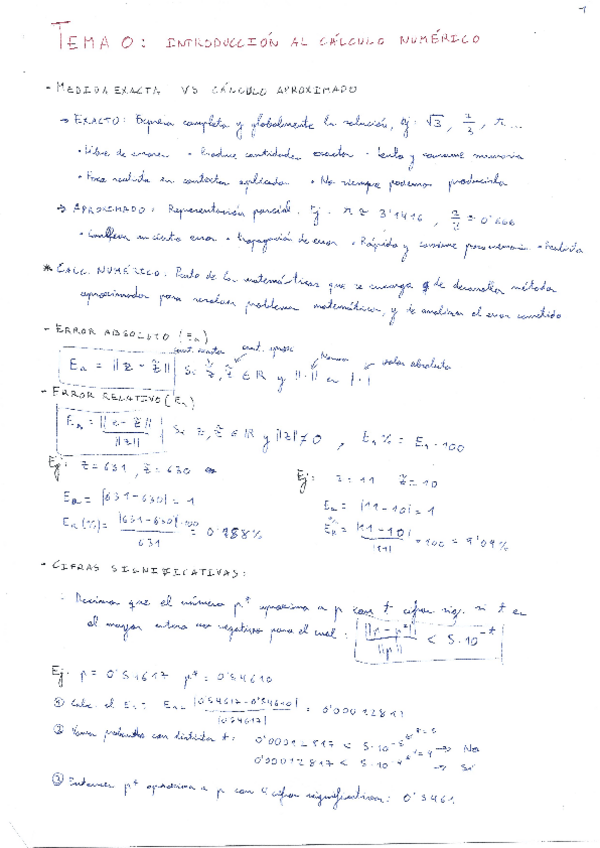 1
TEMA 0: INTRODUCCIÓN AL CÁLCULO NUMÉRICO
- MEDIDA EXACTA VS CÁLCULO APROXIMADO
→ EXACTO: Expresa completa y globalmente la solución, Ej: √3, 2/3, π...
· Libre de errores · Produce cantidades exactas · Lento y consume memoria
· Poca realista en contextos aplicados · No siempre podemos producirla
→ APROXIMADO: Representación parcial. Ej. π ≈ 3'1416, 2/3 ≈ 0'666
· Conlleva un cierto error · Propagación de error · Rápido y consume poca memoria · Realista
* CALC. NUMÉRICO: Parte de las matemáticas que se encarga de desarrollar métodos
aproximados para resolver problemas matemáticos, y de analizar el error cometido
- ERROR ABSOLUTO (Ea)
cant. exacta cant. aprox
Norma valor absoluto
Ea = ||z - z̃|| Si z, z̃ ∈ ℝ y ||·|| es |·|
- ERROR RELATIVO (Er)
Er = ||z - z̃|| / ||z|| Si z, z̃ ∈ ℝ y ||z|| ≠ 0, Er% = Er · 100
Ej: z = 631, z̃ = 630 Ej: z = 11 z̃ = 10
Ea = |631-630| = 1 Ea = |11-10| = 1
|631-630| / 631 · 100 = 0'988% |11-10| / |11| · 100 = 9'09%
- CIFRAS SIGNIFICATIVAS:
· Decimos que el número p* aproxima a p con t cifras sig. si t es
el mayor entero no negativo para el cual: ||p - p*|| / ||p|| < 5·10^-t
Ej. p = 0'54617 p* = 0'54610
① Calc. el Er: Er = |0'54617 - 0'54610| / |0'54617| = 0'00012817
② 0'00012817 < 5·10^-5 t=5 → No
0'00012817 < 5·10^-4 t=4 → Sí
③ Entonces p* aproxima a p con 4 cifras significativas: 0'5461